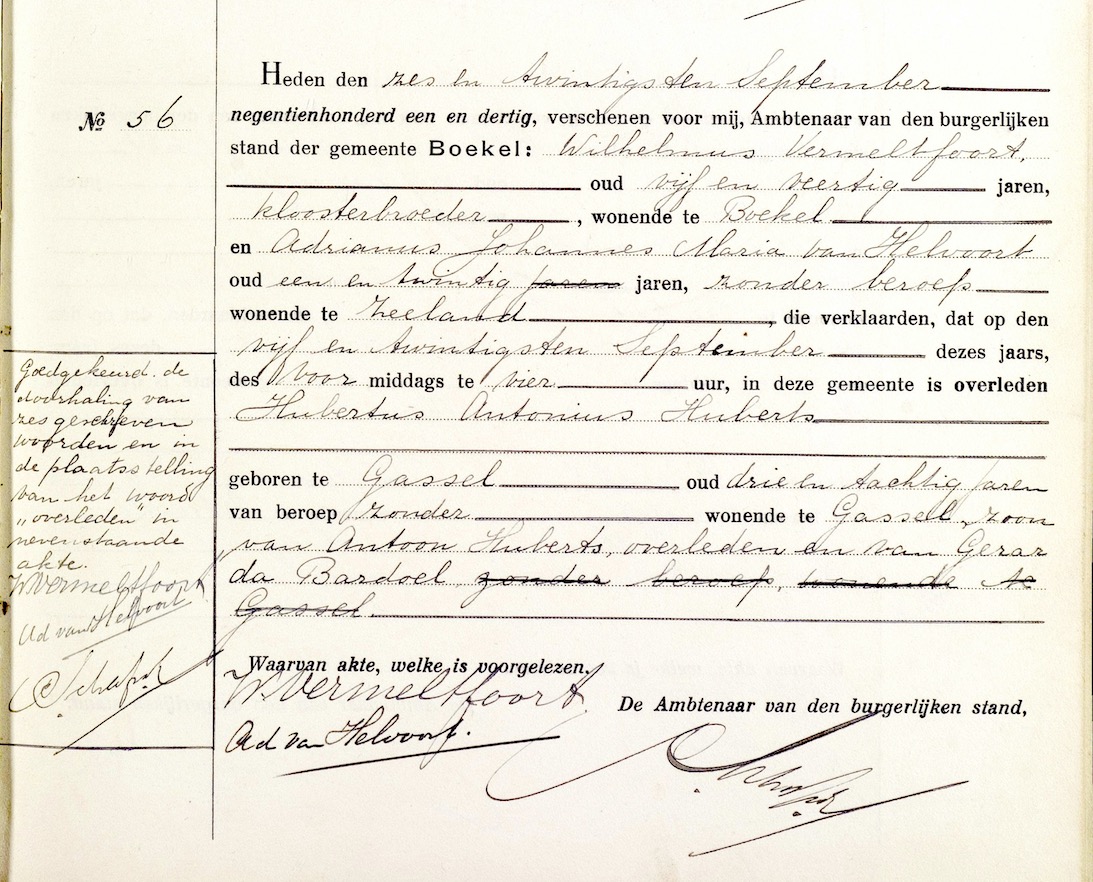 Heden den zes en twintigsten September
No 56
negentienhonderd een en dertig, verschenen voor mij, Ambtenaar van den burgerlijken
stand der gemeente Boekel: Wilhelmus Vermeltfoort,
oud vijf en veertig jaren,
kloosterbroeder, wonende te Boekel
en Adrianus Johannes Maria van Helvoort
oud een en twintig jaren jaren, zonder beroep
wonende te Zeeland, die verklaarden, dat op den
vijf en twintigsten September dezes jaars,
des voor middags te vier uur, in deze gemeente is overleden
Hubertus Antonius Huberts
geboren te Gassel oud drie en tachtig jaren
van beroep zonder wonende te Gassel, zoon
van Antoon Huberts, overleden en van Gerar
da Bardoel, zonder beroep, wonende te
Gassel.
Goedgekeurd de
doorhaling van
zes geschreven
woorden en in
de plaatsstelling
van het woord
„overleden" in
nevenstaande
akte.
W. Vermeltfoort
Ad van Helvoort
Waarvan akte, welke is voorgelezen.
W. Vermeltfoort.
De Ambtenaar van den burgerlijken stand,
Ad van Helvoort.